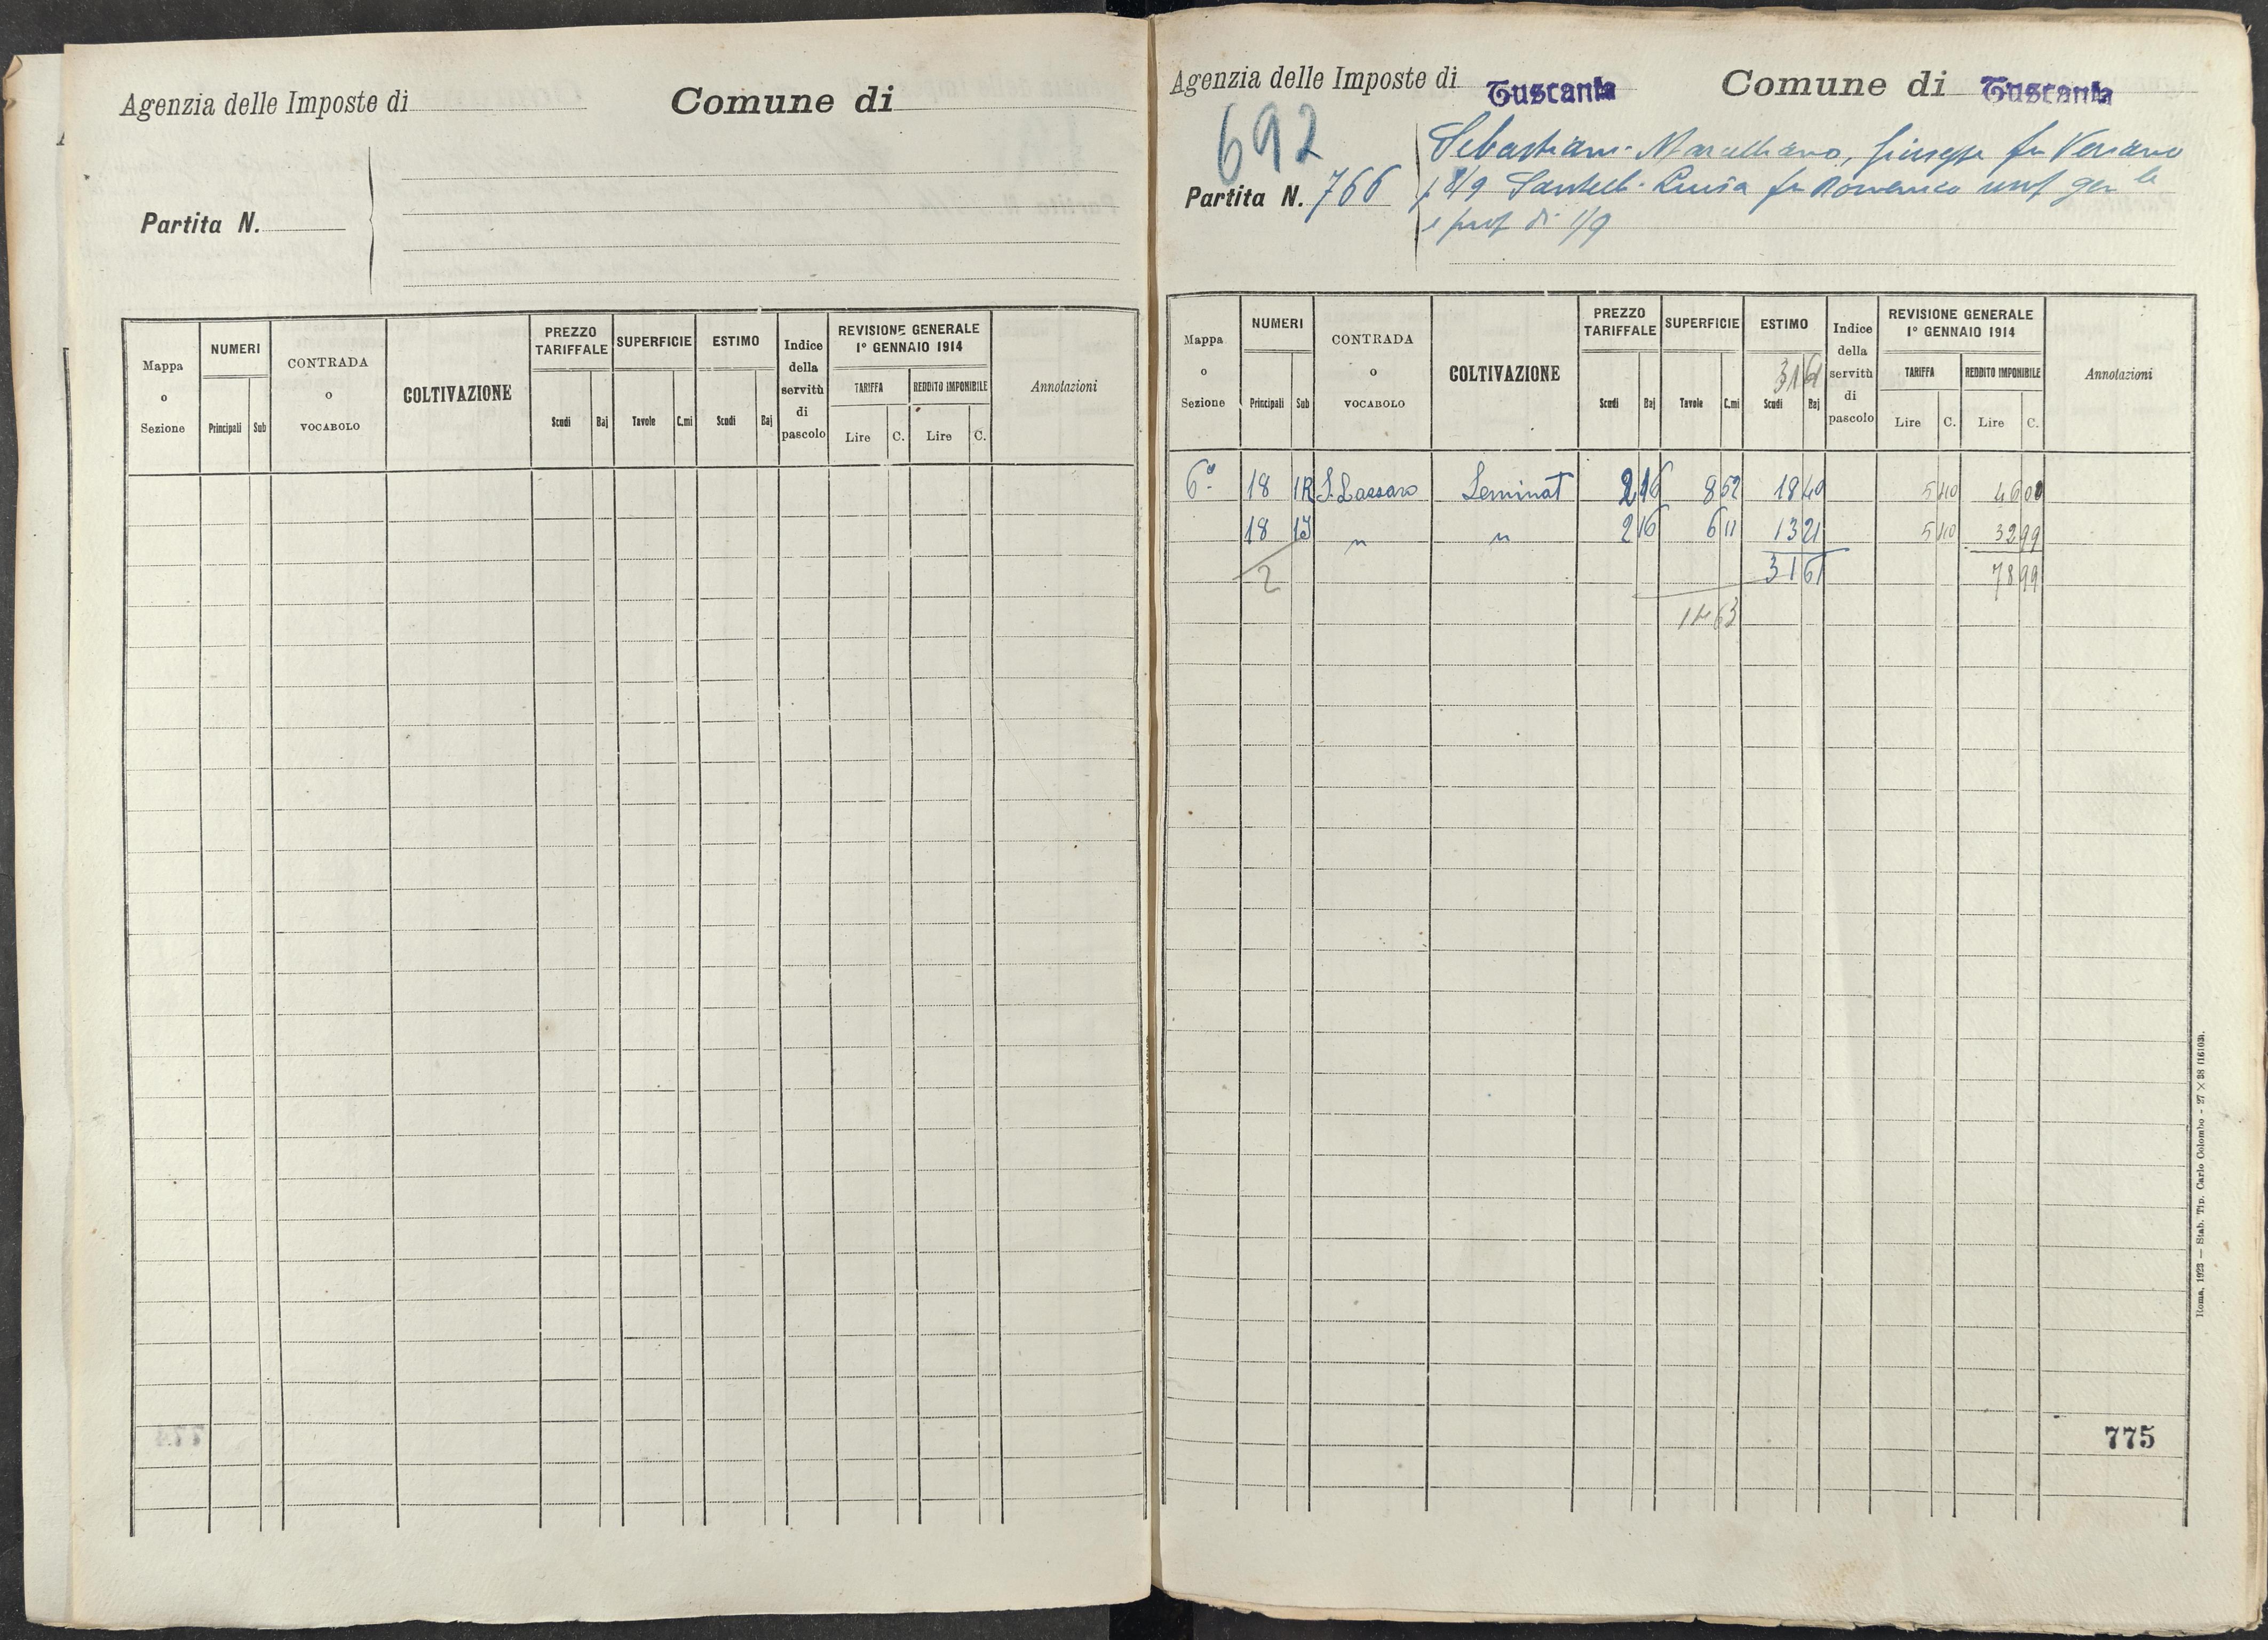 Agenzia delle Imposte di
Comune di
Partita N.
Mappa o Sezione
NUMERI
Principali Sub
CONTRADA o VOCABOLO
COLTIVAZIONE
PREZZO TARIFFALE
Scudi Baj
SUPERFICIE
Tavole C.mi
ESTIMO
Scudi Baj
Indice della servitù di pascolo
REVISIONE GENERALE 1° GENNAIO 1914
TARIFFA
Lire C.
REDDITO IMPONIBILE
Lire C.
Annotazioni
Agenzia delle Imposte di Tuscania
Comune di Tuscania
692
Partita N. 766
Sebastiani Marcelliano, Giuseppe fu Veriano
p 8/9 Santell Luisa fu Domenico usuf gen le
e prop di 1/9
Mappa o Sezione
NUMERI
Principali Sub
CONTRADA o VOCABOLO
COLTIVAZIONE
PREZZO TARIFFALE
Scudi Baj
SUPERFICIE
Tavole C.mi
ESTIMO
3161
Scudi Baj
Indice della servitù di pascolo
REVISIONE GENERALE 1° GENNAIO 1914
TARIFFA
Lire C.
REDDITO IMPONIBILE
Lire C.
Annotazioni
6ª 18 1R S. Lazzaro Seminat 2 16 8 52 18 40 5 40 46 00
18 " " 2 16 6 11 13 21 5 40 32 99
2 31 61 78 99
14 63
775
Roma, 1923 — Stab. Tip. Carlo Colombo - 27 × 38 (16103).